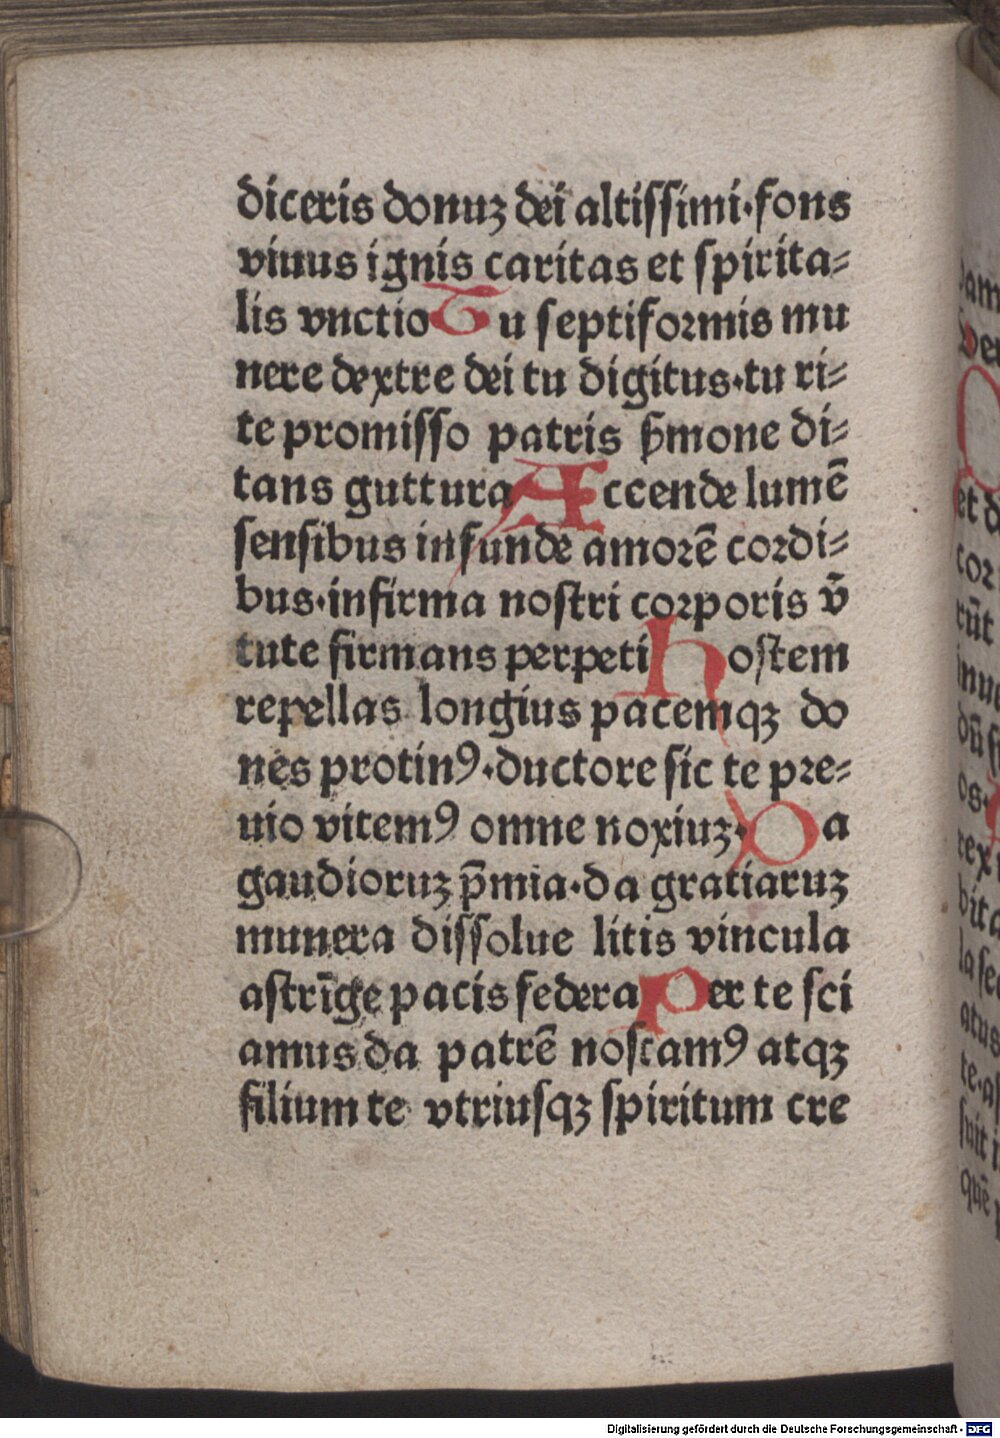 diceris donuʒ dei altissimi·fons
viuus ignis caritas et spirita⸗
lis vnctio Tu septiformis mu
nere dextre dei tu digitus·tu ri⸗
te promisso patris ẜmone di⸗
tans guttura Accende lumē
sensibus infunde amorē cordi⸗
bus·infirma nostri corporis v̄
tute firmans perpeti hostem
repellas longius pacemqʒ do
nes protinꝰ·ductore sic te pre⸗
uio vitemꝰ omne noxiuʒ·Da
gaudioruʒ p̄mia·da gratiaruʒ
munera dissolue litis vincula
astrīge pacis federa Per te sci
amus da patrē noscamꝰ atqʒ
filium te vtriusqʒ spiritum cre
Digitalisierung gefördert durch die Deutsche Forschungsgemeinschaft - DFG